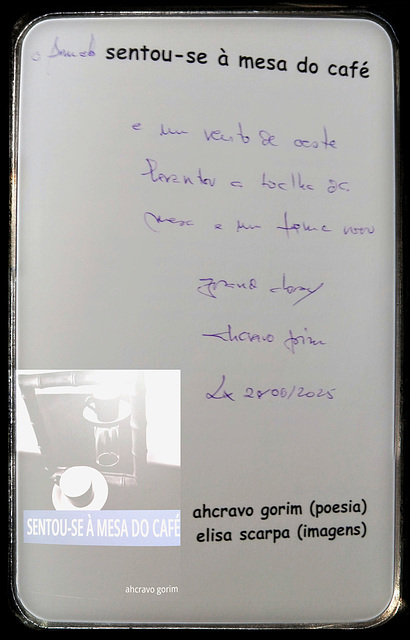 sentou-se à mesa do café
e um vento de oeste
levantou a toalha da
mesa e um
ahcravo gorim
Lx 28/06/2025
SENTOU-SE À MESA DO CAFÉ
ahcravo gorim
ahcravo gorim (poesia)
elisa scarpa (imagens)